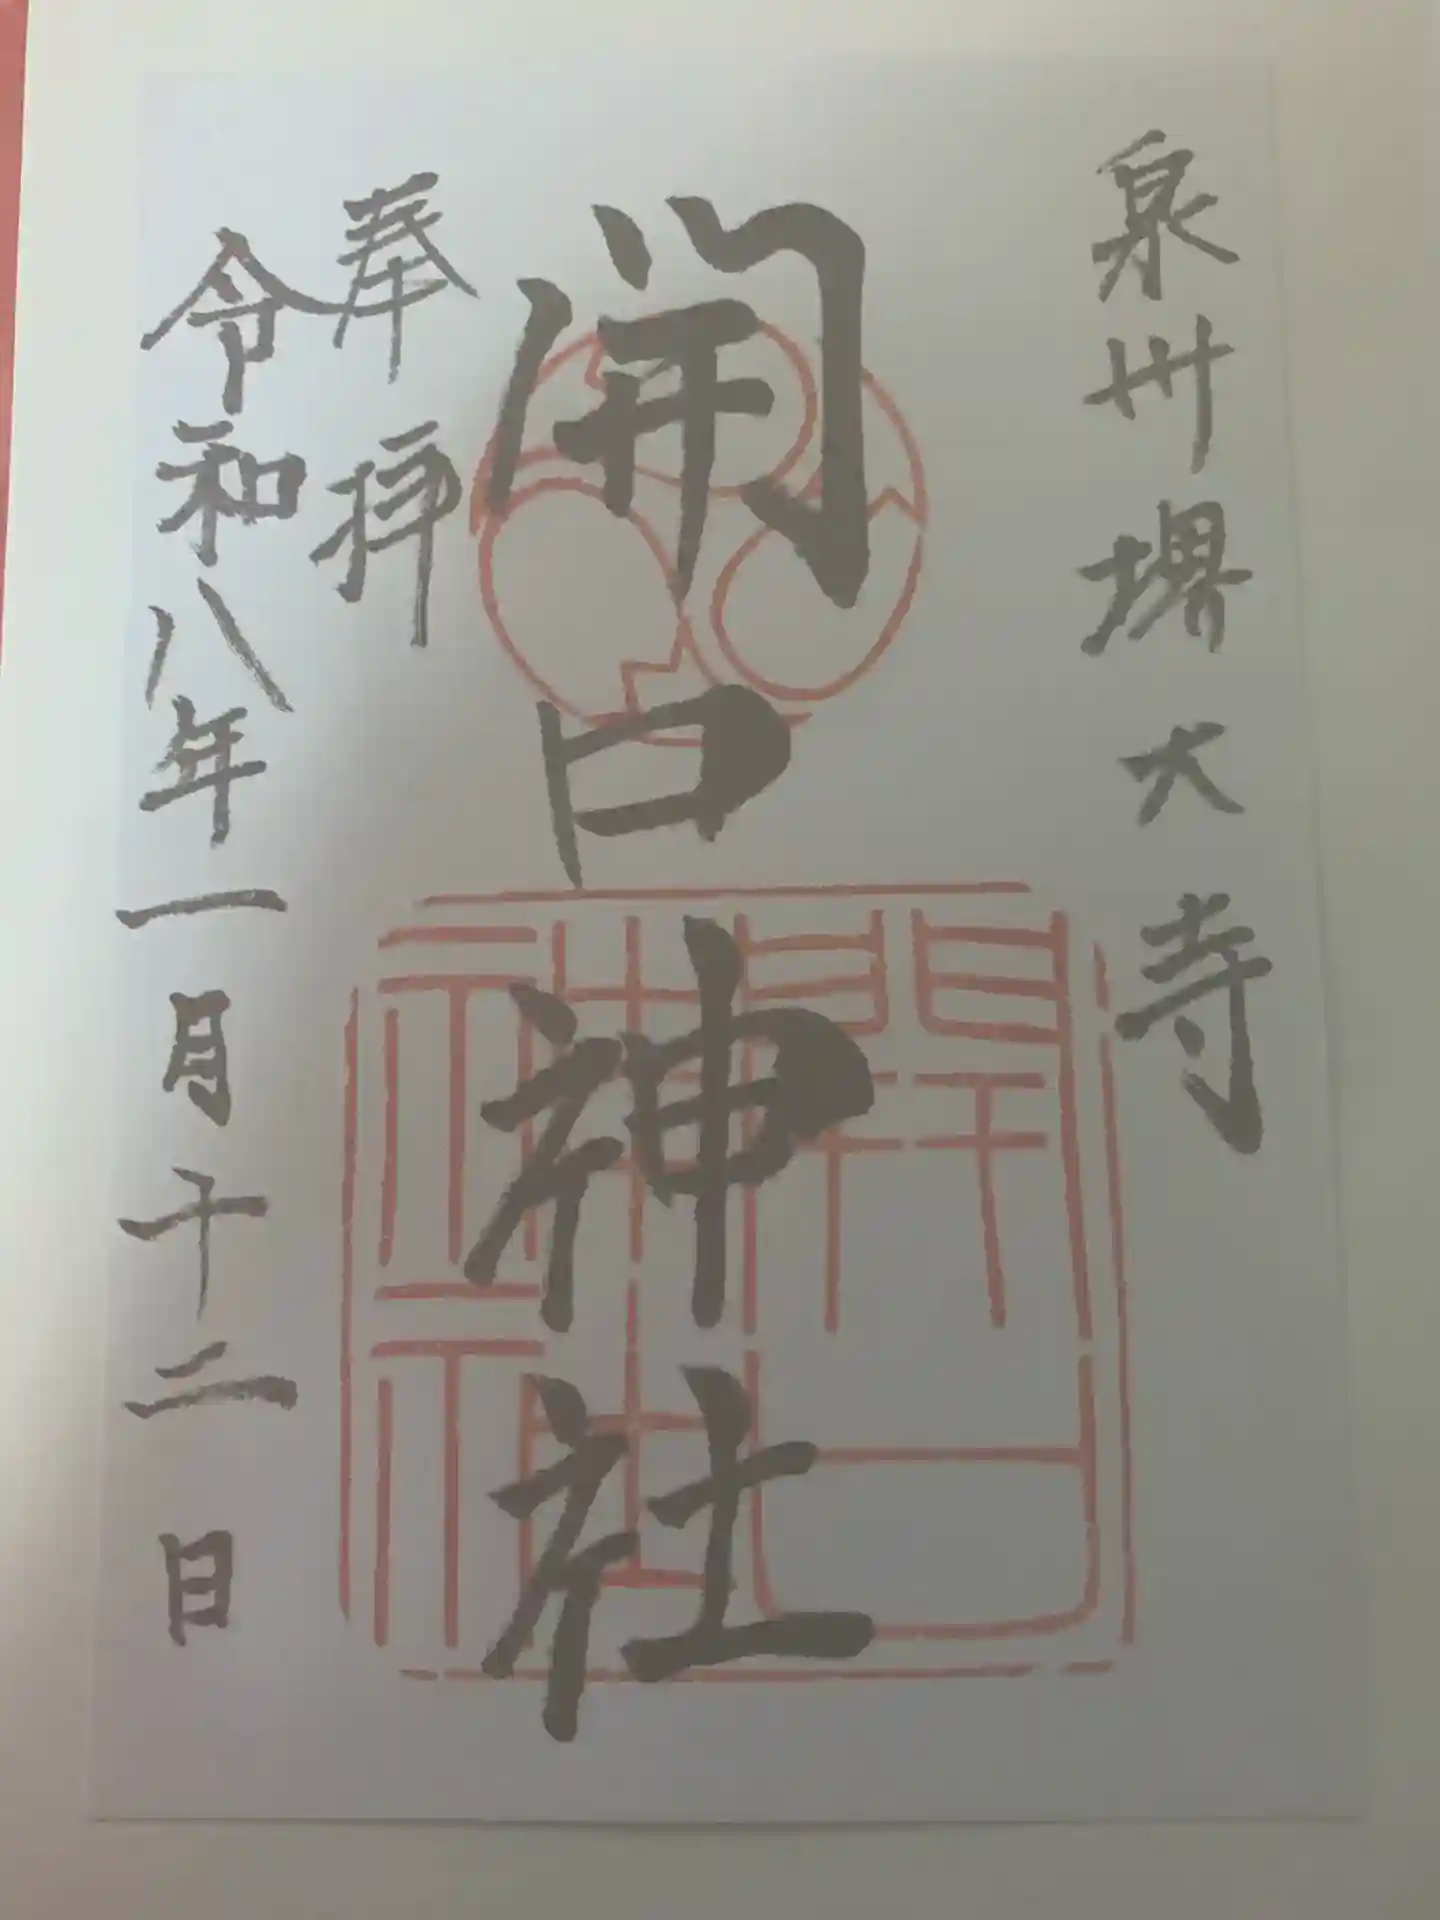 泉州堺大寺
開口神社
開口神社
奉拝
令和八年一月十二日